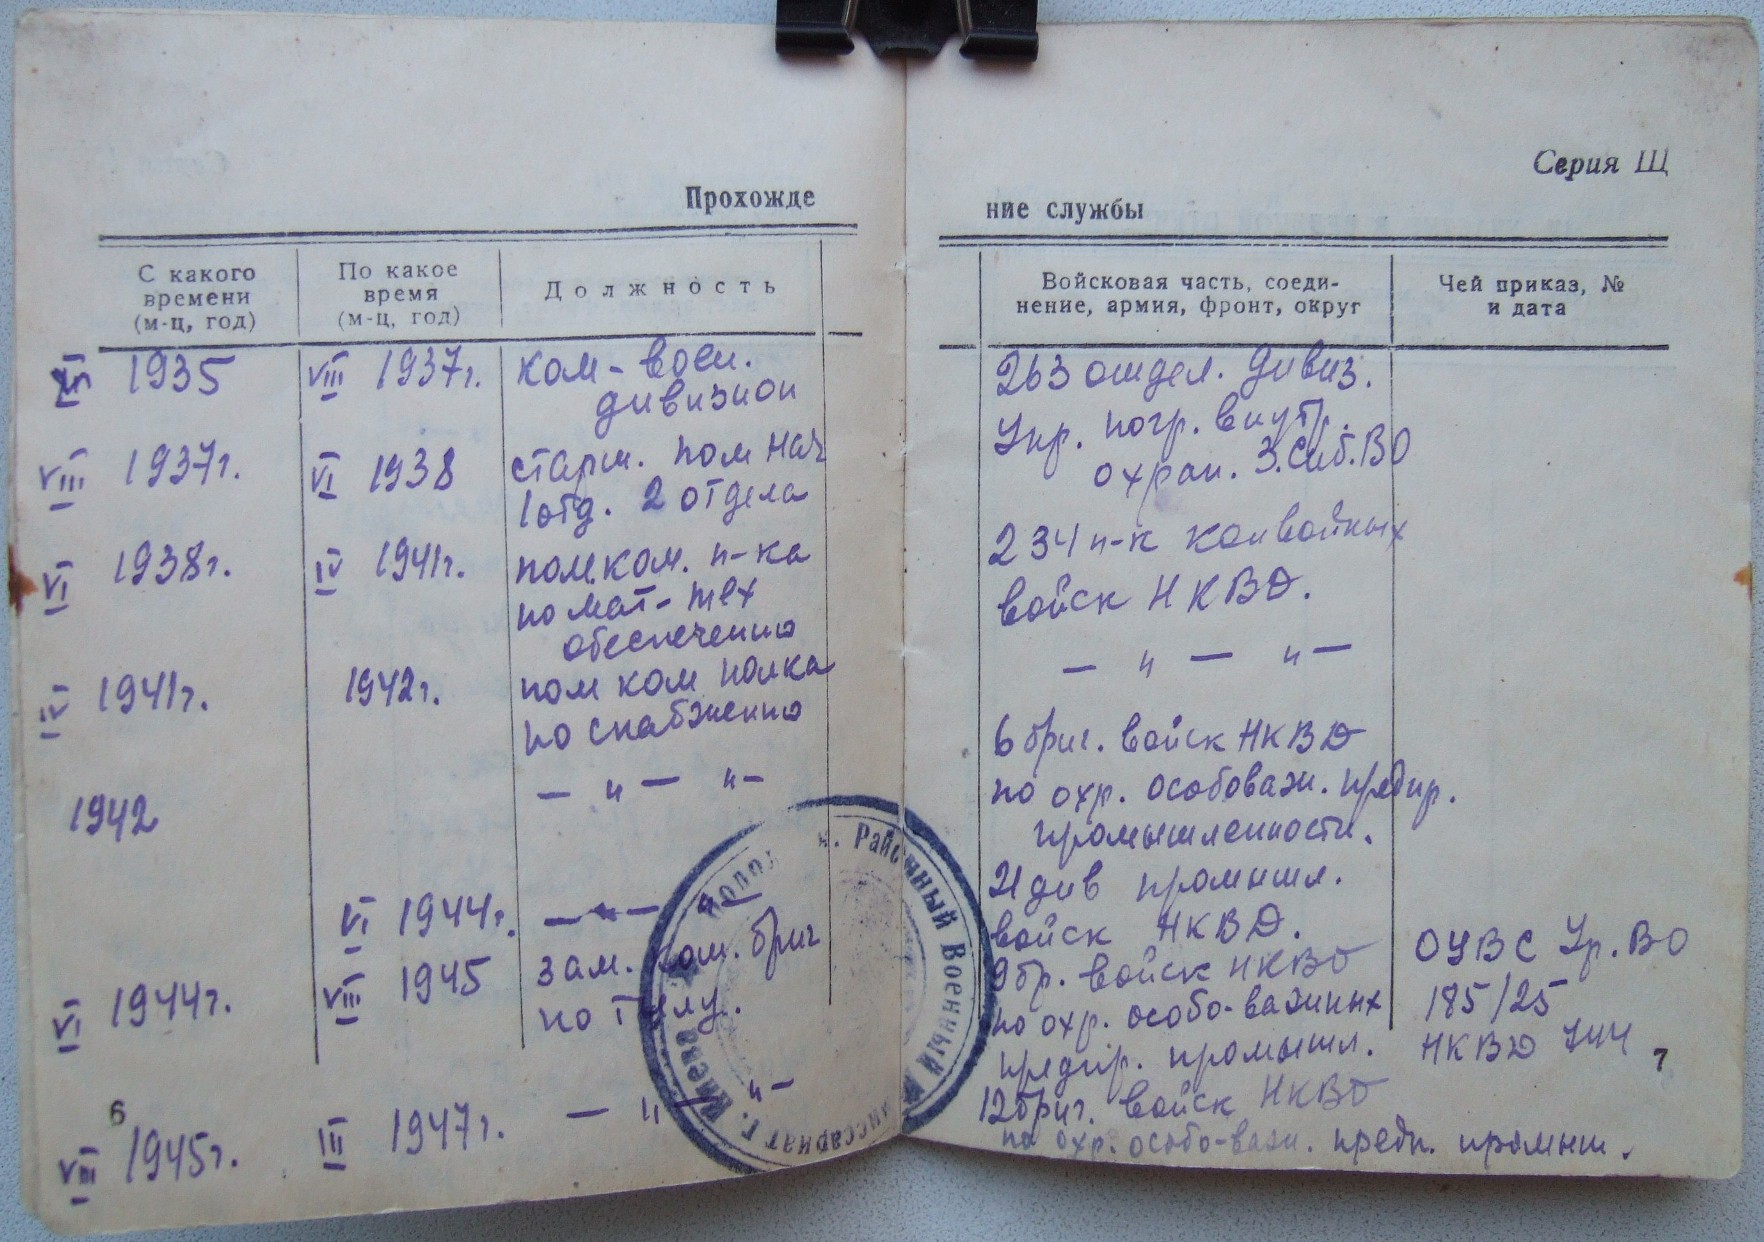 Серия Щ
Прохожде
ние службы
С какого
времени
(м-ц, год)
По какое
время
(м-ц, год)
Должность
Войсковая часть, соеди-
нение, армия, фронт, округ
Чей приказ, №
и дата
1935
VIII 1937г.
ком-
дивизион
263 отдел. дивиз.
VIII 1937г.
VI 1938
старш. пом нач
1 отд. 2 отдела
Упр. погр. внутр.
охран. З.Сиб.ВО
VI 1938г.
IV 1941г.
пом.ком. п-ка
по мат-тех
обеспечению
234 п-к конвойных
войск НКВД.
IV 1941г.
1942г.
пом ком полка
по снабжению
— " — " —
1942
— " — " —
6 бриг. войск НКВД
по охр. особоважн. предпр.
промышленности.
VI 1944г.
— " — " —
21 див промышл.
войск НКВД.
VI 1944г.
VIII 1945
зам. ком. бриг
по тылу.
9 бр. войск НКВД
по охр. особо-важных
предпр. промышл.
ОУВС Ур.ВО
185/25
НКВД
VIII 1945г.
III 1947г.
— " — " —
12 бриг. войск НКВД
по охр. особо-важн. предп. промыш.
6
7
Районный Военный
миссариат г. Киева